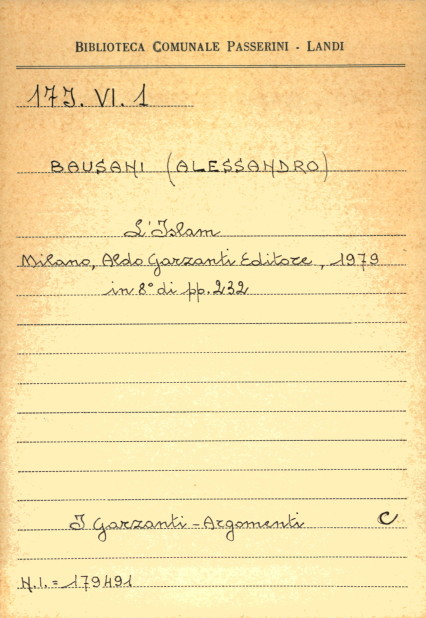 BIBLIOTECA COMUNALE PASSERINI - LANDI
17J. VI. 1
BAUSANI (ALESSANDRO)
L'Islam
Milano, Aldo Garzanti Editore, 1979
in 8° di pp. 232
I Garzanti - Argomenti C
N.I. = 179491